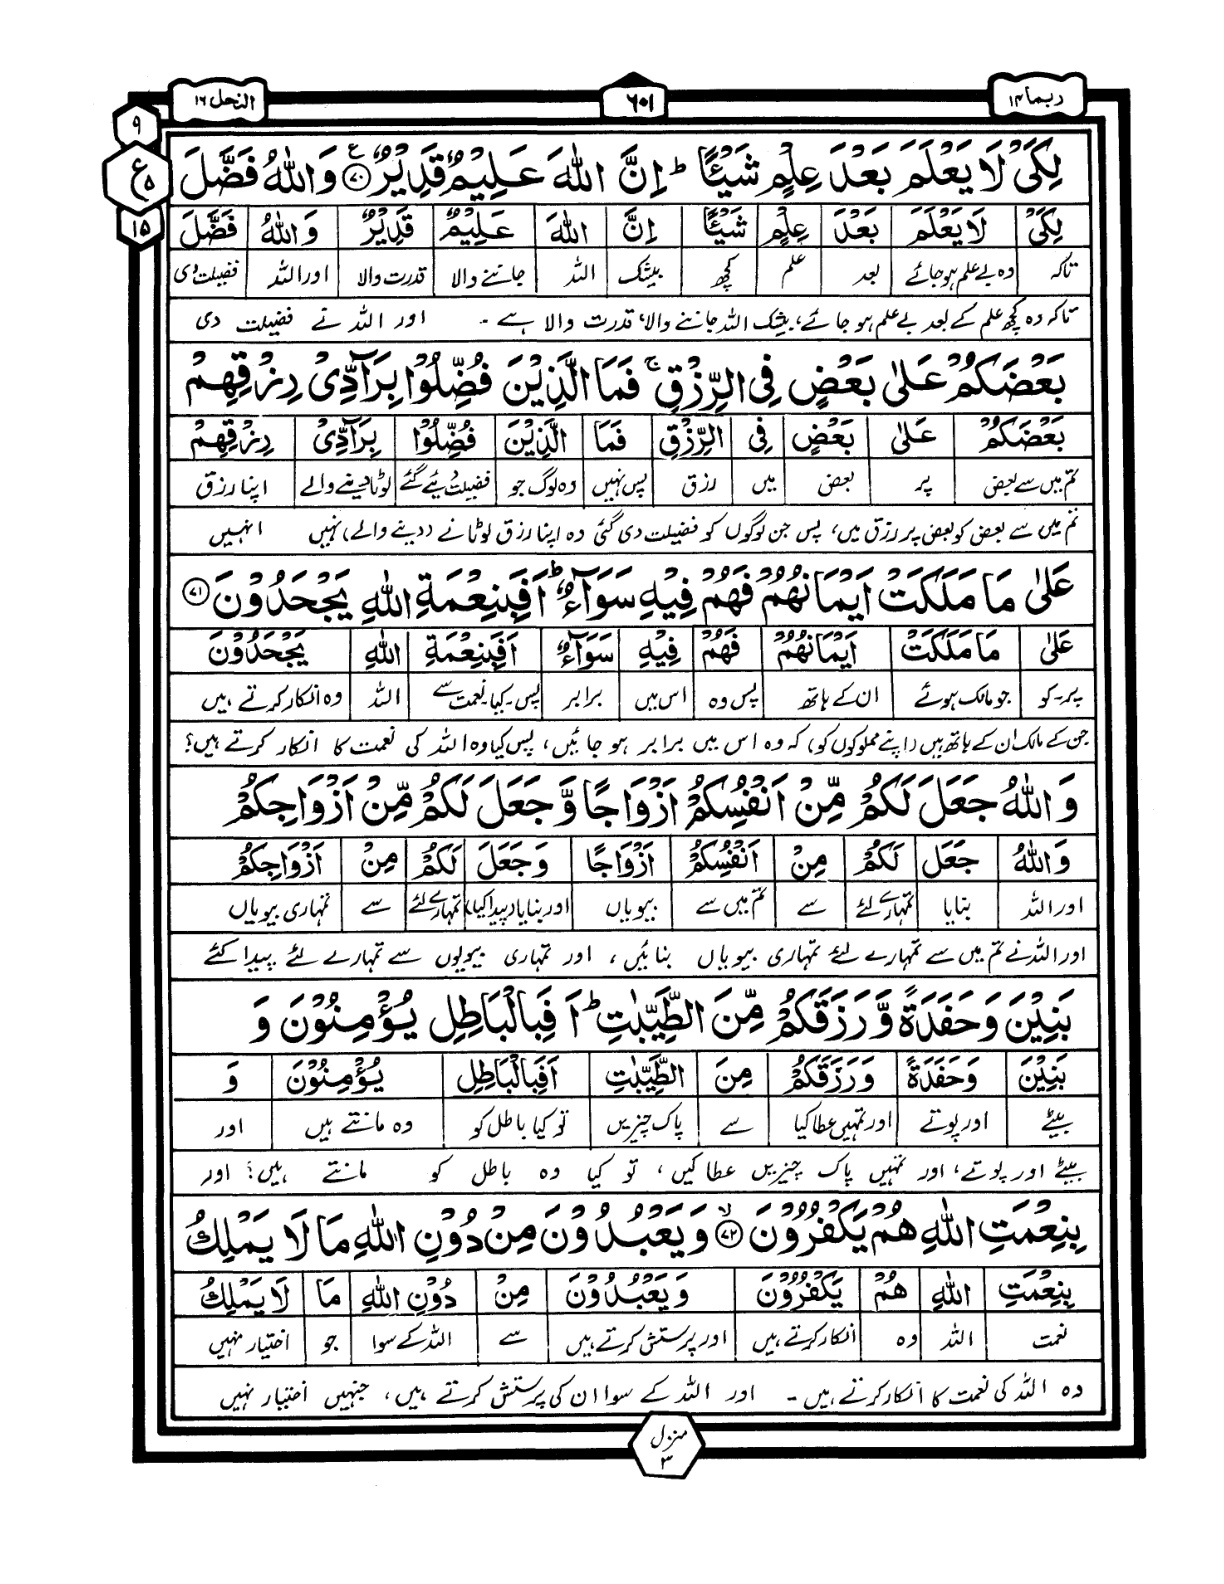 ربما ۱۴
۶۰۱
النحل ۱۶
۹
ع
۵
۱۵
لِكَىْ لَا يَعْلَمَ بَعْدَ عِلْمٍ شَيْـًٔا ؕ اِنَّ اللّٰهَ عَلِيْمٌ قَدِيْرٌ ﴿۷۰﴾ وَاللّٰهُ فَضَّلَ
لِكَىْ لَا يَعْلَمَ بَعْدَ عِلْمٍ شَيْـًٔا اِنَّ اللّٰهَ عَلِيْمٌ قَدِيْرٌ وَاللّٰهُ فَضَّلَ
تاکہ وہ بے علم ہو جائے بعد علم کچھ بیشک اللہ جاننے والا قدرت والا اور اللہ فضیلت دی
تاکہ وہ کچھ علم کے بعد بے علم ہو جائے، بیشک اللہ جاننے والا، قدرت والا ہے۔ اور اللہ نے فضیلت دی
بَعْضَكُمْ عَلٰى بَعْضٍ فِى الرِّزْقِ ۚ فَمَا الَّذِيْنَ فُضِّلُوْا بِرَآدِّىْ رِزْقِهِمْ
بَعْضَكُمْ عَلٰى بَعْضٍ فِى الرِّزْقِ فَمَا الَّذِيْنَ فُضِّلُوْا بِرَآدِّىْ رِزْقِهِمْ
تم میں سے بعض پر بعض میں رزق پس نہیں وہ لوگ جو فضیلت دیے گئے لوٹا دینے والے اپنا رزق
تم میں سے بعض کو بعض پر رزق میں، پس جن لوگوں کو فضیلت دی گئی وہ اپنا رزق لوٹانے (دینے والے) نہیں انہیں
عَلٰى مَا مَلَكَتْ اَيْمَانُهُمْ فَهُمْ فِيْهِ سَوَآءٌ ؕ اَفَبِنِعْمَةِ اللّٰهِ يَجْحَدُوْنَ ﴿۷۱﴾
عَلٰى مَا مَلَكَتْ اَيْمَانُهُمْ فَهُمْ فِيْهِ سَوَآءٌ اَفَبِنِعْمَةِ اللّٰهِ يَجْحَدُوْنَ
پر۔کو جو مالک ہوئے ان کے ہاتھ پس وہ اس میں برابر پس۔کیا۔نعمت سے اللہ وہ انکار کرتے ہیں
جن کے مالک ان کے ہاتھ ہیں (اپنے مملوکوں کو) کہ وہ اس میں برابر ہو جائیں، پس کیا وہ اللہ کی نعمت کا انکار کرتے ہیں؟
وَاللّٰهُ جَعَلَ لَكُمْ مِّنْ اَنْفُسِكُمْ اَزْوَاجًا وَّجَعَلَ لَكُمْ مِّنْ اَزْوَاجِكُمْ
وَاللّٰهُ جَعَلَ لَكُمْ مِنْ اَنْفُسِكُمْ اَزْوَاجًا وَجَعَلَ لَكُمْ مِنْ اَزْوَاجِكُمْ
اور اللہ بنایا تمہارے لئے سے تم میں سے بیویاں اور بنایا (پیدا کیا) تمہارے لئے سے تمہاری بیویاں
اور اللہ نے تم میں سے تمہارے لئے تمہاری بیویاں بنائیں، اور تمہاری بیویوں سے تمہارے لئے پیدا کئے
بَنِيْنَ وَحَفَدَةً وَّرَزَقَكُمْ مِّنَ الطَّيِّبٰتِ ؕ اَفَبِالْبَاطِلِ يُؤْمِنُوْنَ وَ
بَنِيْنَ وَحَفَدَةً وَرَزَقَكُمْ مِنَ الطَّيِّبٰتِ اَفَبِالْبَاطِلِ يُؤْمِنُوْنَ وَ
بیٹے اور پوتے اور تمہیں عطا کیا سے پاک چیزیں تو کیا باطل کو وہ مانتے ہیں اور
بیٹے اور پوتے، اور تمہیں پاک چیزیں عطا کیں، تو کیا وہ باطل کو مانتے ہیں؟ اور
بِنِعْمَتِ اللّٰهِ هُمْ يَكْفُرُوْنَ ۙ﴿۷۲﴾ وَيَعْبُدُوْنَ مِنْ دُوْنِ اللّٰهِ مَا لَا يَمْلِكُ
بِنِعْمَتِ اللّٰهِ هُمْ يَكْفُرُوْنَ وَيَعْبُدُوْنَ مِنْ دُوْنِ اللّٰهِ مَا لَا يَمْلِكُ
نعمت اللہ وہ انکار کرتے ہیں اور پرستش کرتے ہیں سے اللہ کے سوا جو اختیار نہیں
وہ اللہ کی نعمت کا انکار کرتے ہیں۔ اور اللہ کے سوا ان کی پرستش کرتے ہیں، جنہیں اختیار نہیں
منزل
۳